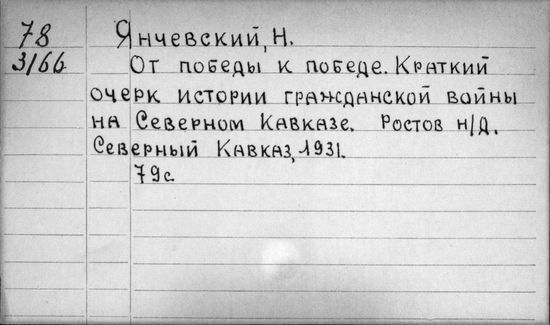 78 Янчевский, Н.
3/66 От победы к победе. Краткий
очерк истории гражданской войны
на Северном Кавказе. Ростов н/Д.
Северный Кавказ, 1931.
79с.